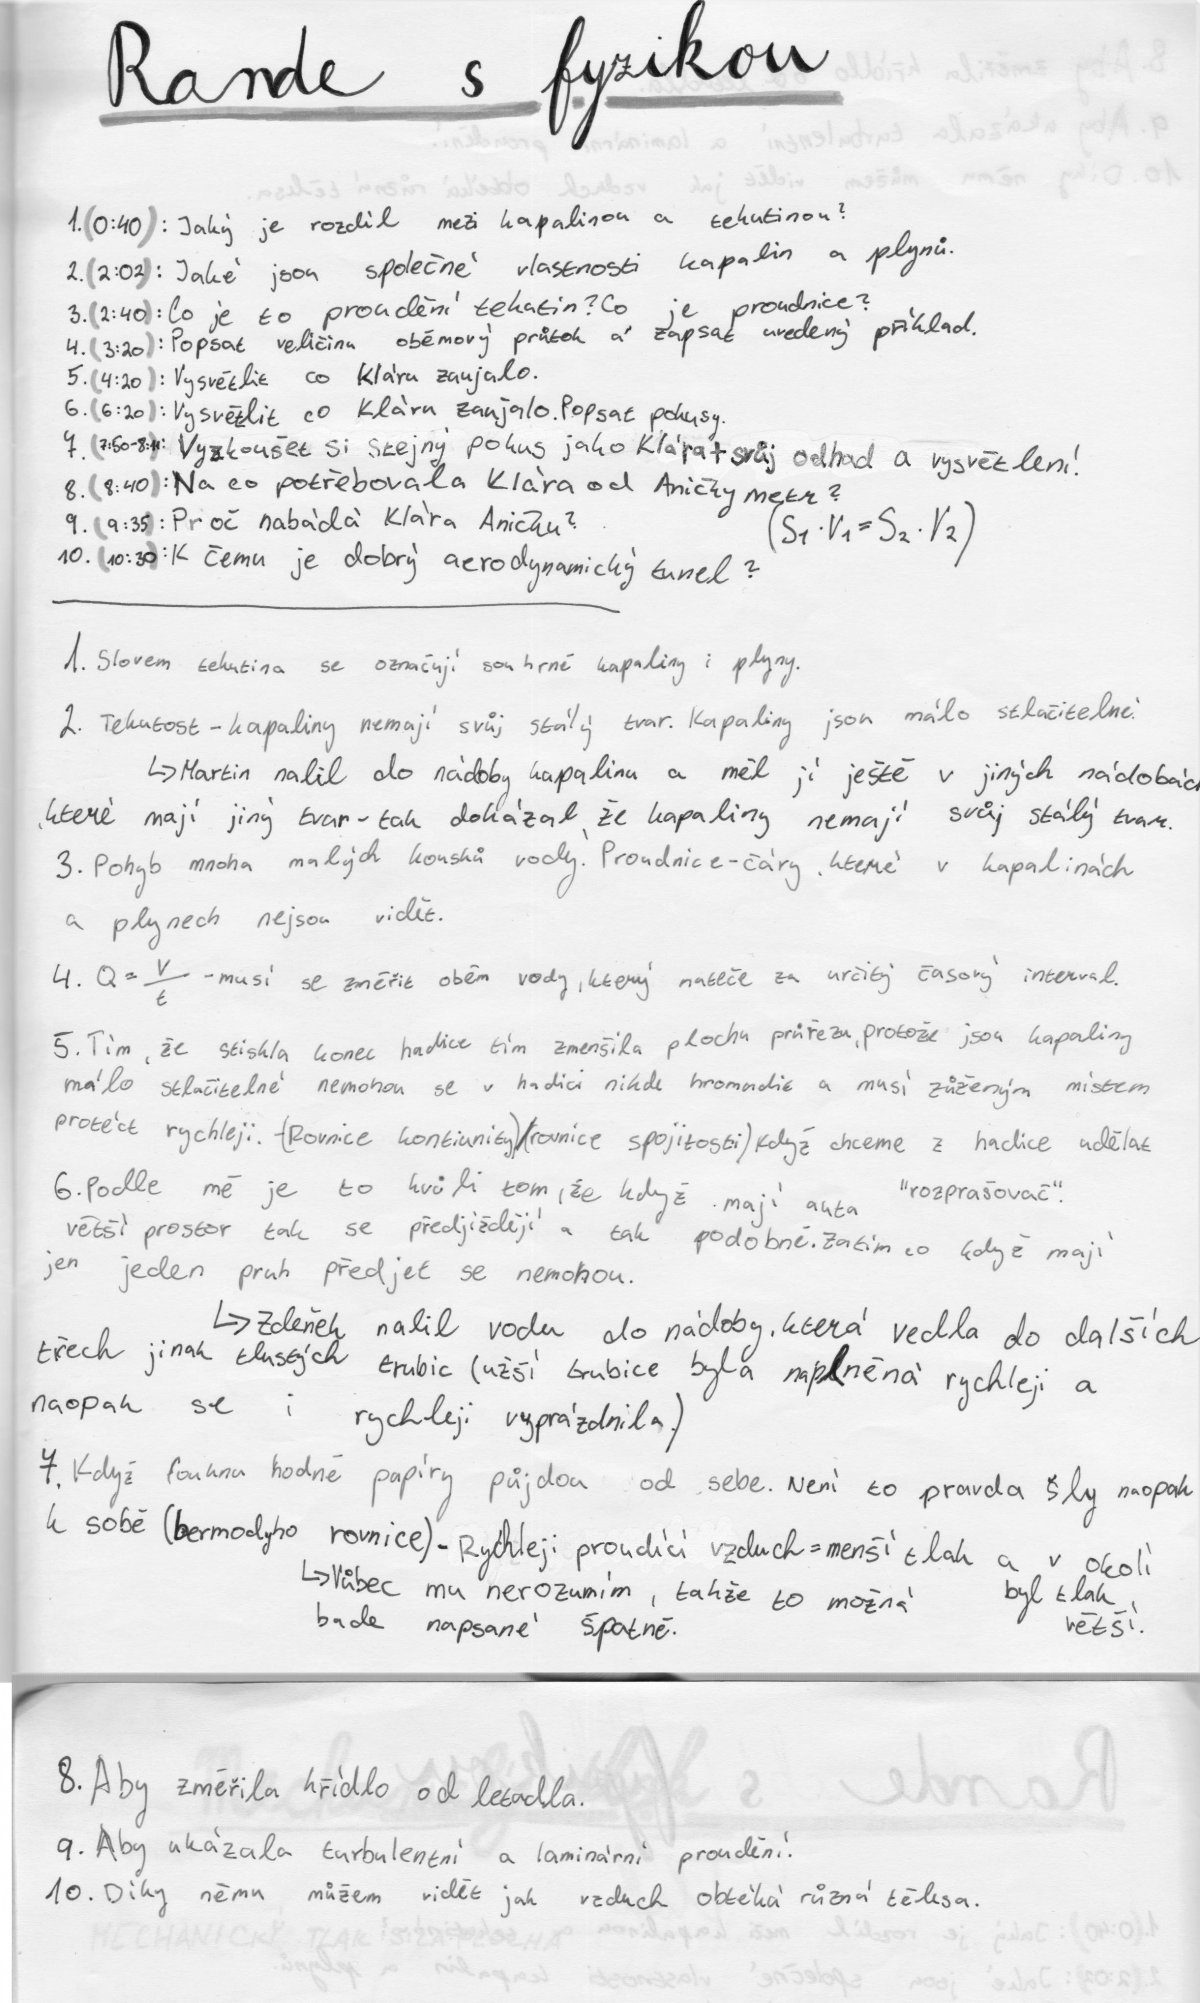 Rande s fyzikou
1. (0:40): Jaký je rozdíl mezi kapalinou a tekutinou?
2. (2:02): Jaké jsou společné vlastnosti kapalin a plynů.
3. (2:40): Co je to proudění tekutin? Co je proudnice?
4. (3:20): Popsat veličinu oběmový průtok a zapsat uvedený příklad.
5. (4:20): Vysvětlit co Kláru zaujalo.
6. (6:20): Vysvětlit co Kláru zaujalo. Popsat pokusy.
7. (7:50-8:11): Vyzkoušet si stejný pokus jako Klára + svůj odhad a vysvětlení!
8. (8:40): Na co potřebovala Klára od Aničky metr?
9. (9:35): Proč nabádá Klára Aničku? (S₁·V₁=S₂·V₂)
10. (10:30): K čemu je dobrý aerodynamický tunel?
1. Slovem tekutina se označují souhrně kapaliny i plyny.
2. Tekutost - kapaliny nemají svůj stálý tvar. Kapaliny jsou málo stlačitelné.
↳ Martin nalil do nádoby kapalinu a měl jí ještě v jiných nádobách
, které mají jiný tvar - tak dokázal, že kapaliny nemají svůj stálý tvar.
3. Pohyb mnoha malých kousků vody. Proudnice - čáry, které v kapalinách
a plynech nejsou vidět.
4. Q = V/t - musí se změřit oběm vody, který nateče za určitý časový interval.
5. Tím, že stiskla konec hadice tím zmenšila plochu průřezu, protože jsou kapaliny
málo stlačitelné nemohou se v hadici nikde hromadit a musí zúženým místem
protéct rychleji. (Rovnice kontiunity)/(rovnice spojitosti) Když chceme z hadice udělat
"rozprašovač".
6. Podle mě je to kvůli tom, že když mají auta
větší prostor tak se předjíždějí a tak podobně. Zatím co když mají
jen jeden pruh předjet se nemohou.
↳ Zdeněk nalil vodu do nádoby, která vedla do dalších
třech jinak tlustých trubic (užší trubice byla naplněná rychleji a
naopak se i rychleji vyprázdnila.)
7. Když fouknu hodně papíry půjdou od sebe. Není to pravda šly naopak
k sobě (bermodyho rovnice) - Rychleji proudící vzduch = menší tlak a v okolí
byl tlak větší.
↳ Vůbec mu nerozumím, takže to možná
bude napsané špatně.
8. Aby změřila křídlo od letadla.
9. Aby ukázala turbulentní a laminární proudění.
10. Díky němu můžem vidět jak vzduch obtéká různá tělesa.